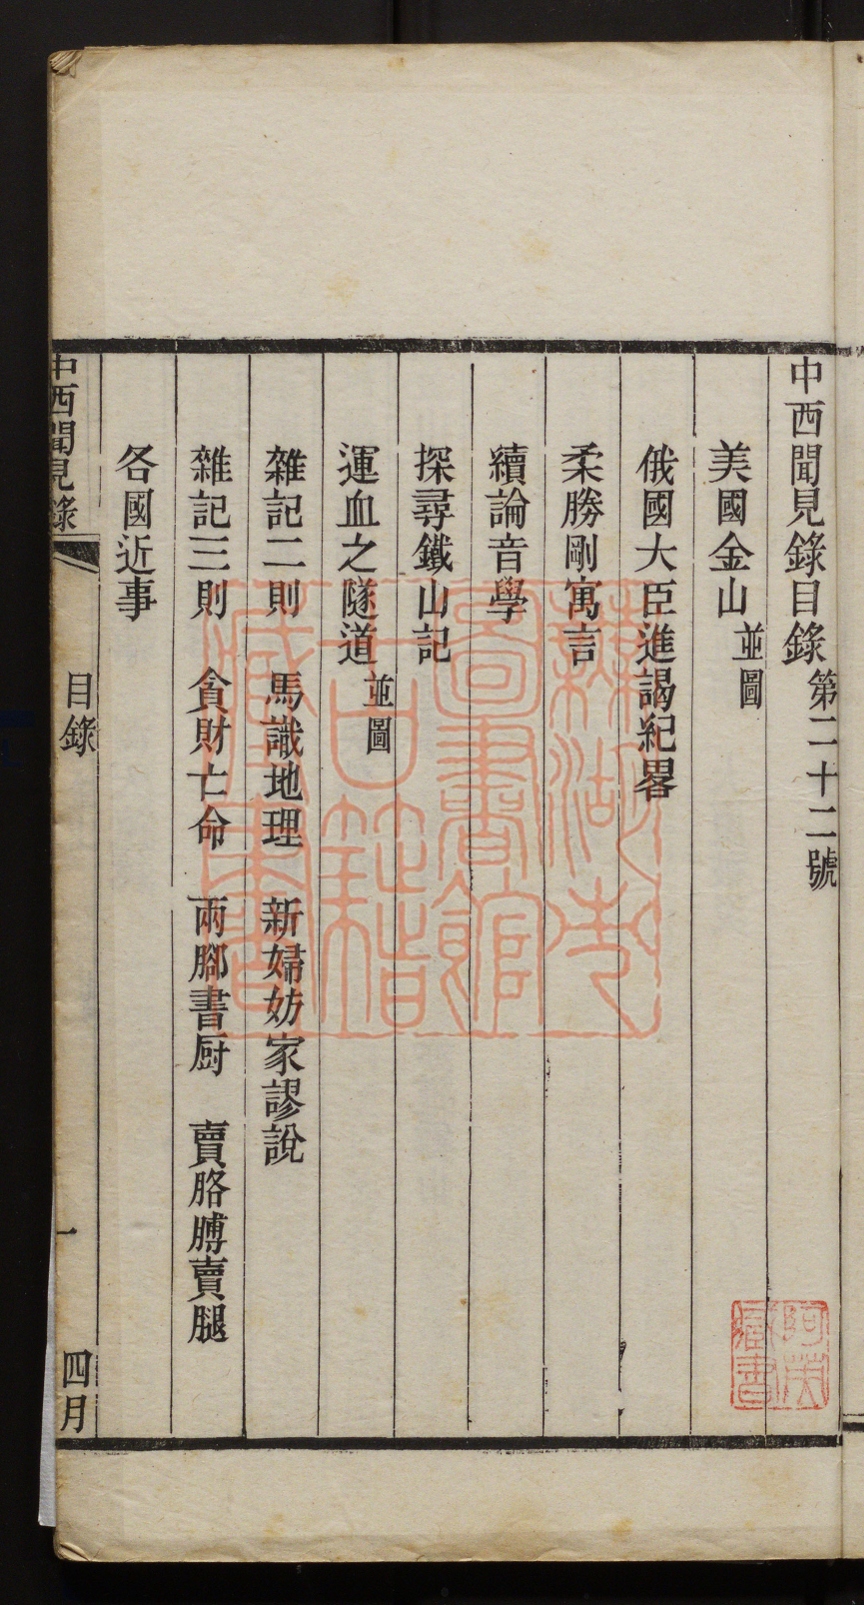 中西聞見錄目錄第二十二號
美國金山並圖
俄國大臣進謁紀畧
柔勝剛寓言
續論音學
探尋鐵山記
運血之隧道並圖
雜記二則 馬識地理 新婦妨家謬說
雜記三則 貪財亡命 兩腳書厨 賣胳膊賣腿
各國近事
中西聞見錄 目錄 一 四月
蕪湖市圖書館古籍藏書
阿英藏書